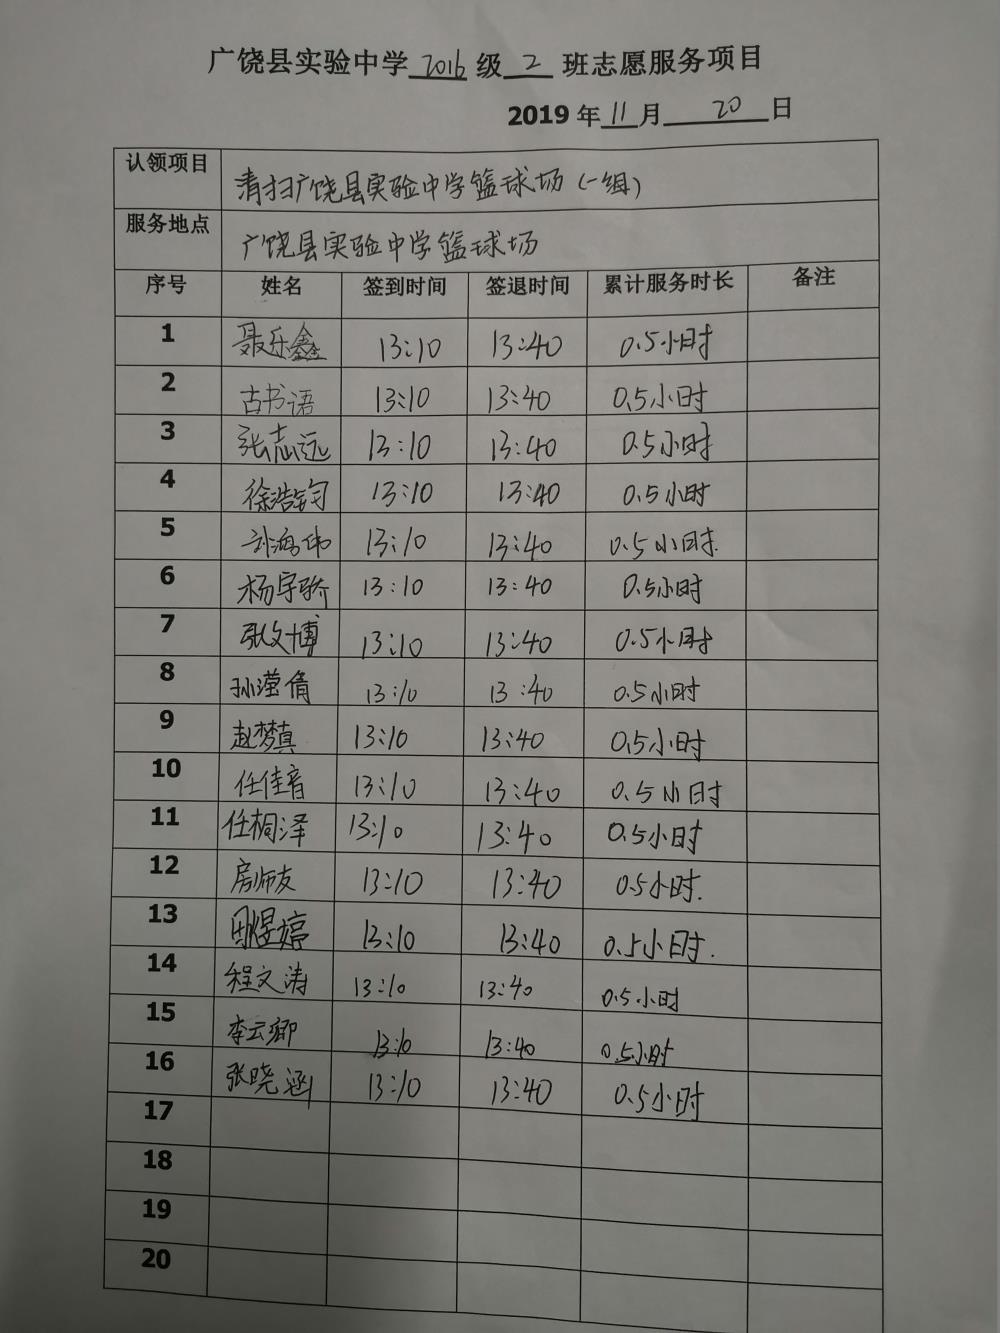 广饶县实验中学2016级2班志愿服务项目
2019年11月20日
认领项目 清扫广饶县实验中学篮球场(一组)
服务地点 广饶县实验中学篮球场
序号 姓名 签到时间 签退时间 累计服务时长 备注
1 聂乐鑫 13:10 13:40 0.5小时
2 古书语 13:10 13:40 0.5小时
3 张志远 13:10 13:40 0.5小时
4 徐浩钧 13:10 13:40 0.5小时
5 刘鸿伟 13:10 13:40 0.5小时.
6 杨宇骄 13:10 13:40 0.5小时
7 张文博 13:10 13:40 0.5小时
8 孙滢倩 13:10 13:40 0.5小时
9 赵梦真 13:10 13:40 0.5小时
10 任佳音 13:10 13:40 0.5小时
11 任桐泽 13:10 13:40 0.5小时
12 房师友 13:10 13:40 0.5小时.
13 田煜婷 13:10 13:40 0.5小时.
14 程文涛 13:10 13:40 0.5小时
15 李云卿 13:10 13:40 0.5小时
16 张晓涵 13:10 13:40 0.5小时
17
18
19
20